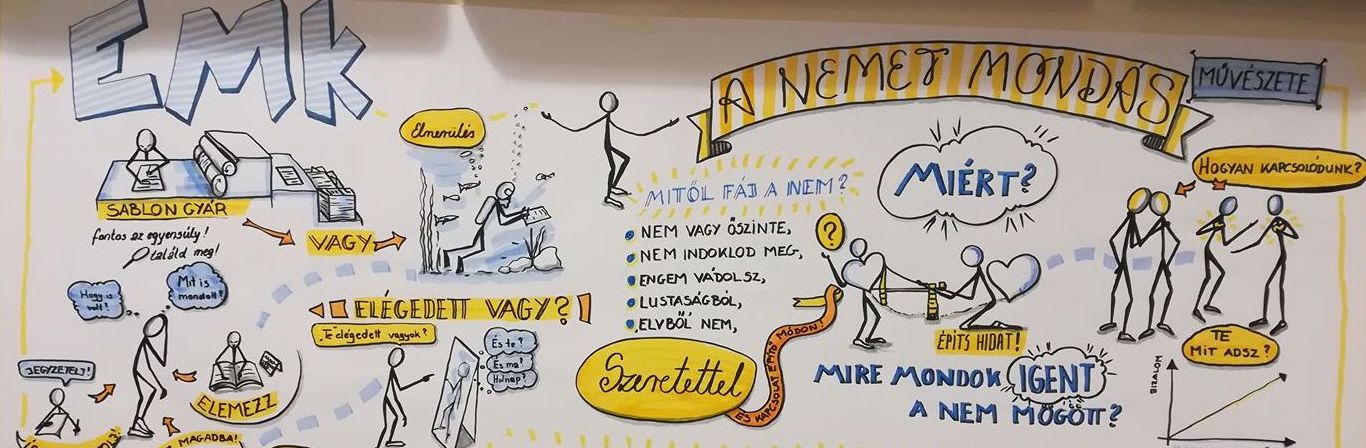 EMK
A NEMET MONDÁS
MŰVÉSZETE
Elmerülés
SABLON GYÁR
VAGY
fontos az egyensúly!
találd meg!
Hogy is
volt?
Mit is
mondott?
JEGYZETELJ!
ELEMEZZ
MAGADBA!
ELÉGEDETT VAGY?
Te elégedett vagyok?
És te?
És ma?
Holnap?
MITŐL FÁJ A NEM?
NEM VAGY ŐSZINTE,
NEM INDOKLOD MEG,
ENGEM VÁDOLSZ,
LUSTASÁGBÓL,
ELVBŐL NEM,
Szeretettel
ÉS KAPCSOLAT ÉPÍTŐ MÓDON!
MIÉRT?
?
ÉPÍTS HIDAT!
MIRE MONDOK IGENT
A NEM MÖGÖTT?
HOGYAN KAPCSOLÓDUNK?
TE
MIT ADSZ?
BIZALOM